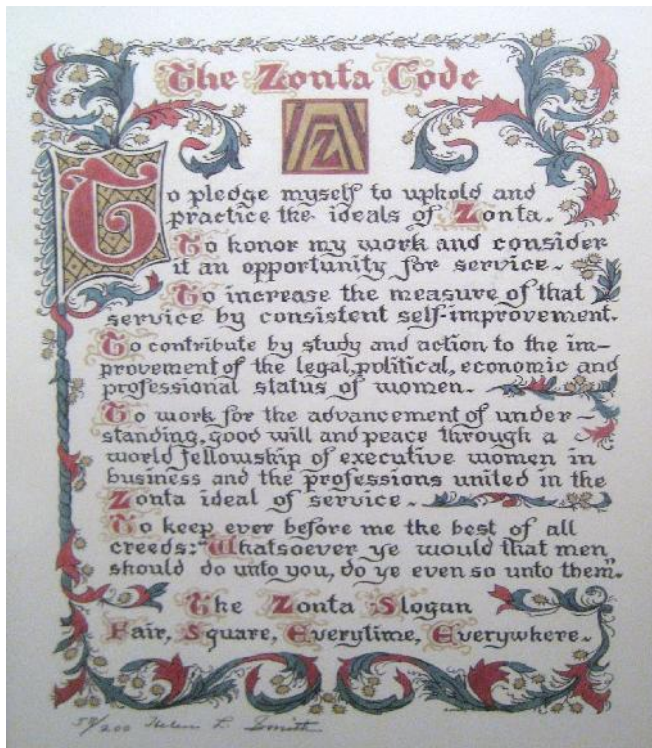 The Zonta Code
To pledge myself to uphold and
practice the ideals of Zonta.
To honor my work and consider
it an opportunity for service.
To increase the measure of that
service by consistent self-improvement.
To contribute by study and action to the im-
provement of the legal, political, economic and
professional status of women.
To work for the advancement of under-
standing, good will and peace through a
world fellowship of executive women in
business and the professions united in the
Zonta ideal of service.
To keep ever before me the best of all
creeds: "Whatsoever ye would that men
should do unto you, do ye even so unto them."
The Zonta Slogan
Fair, Square, Everytime, Everywhere.
/200 Helen L. Smith